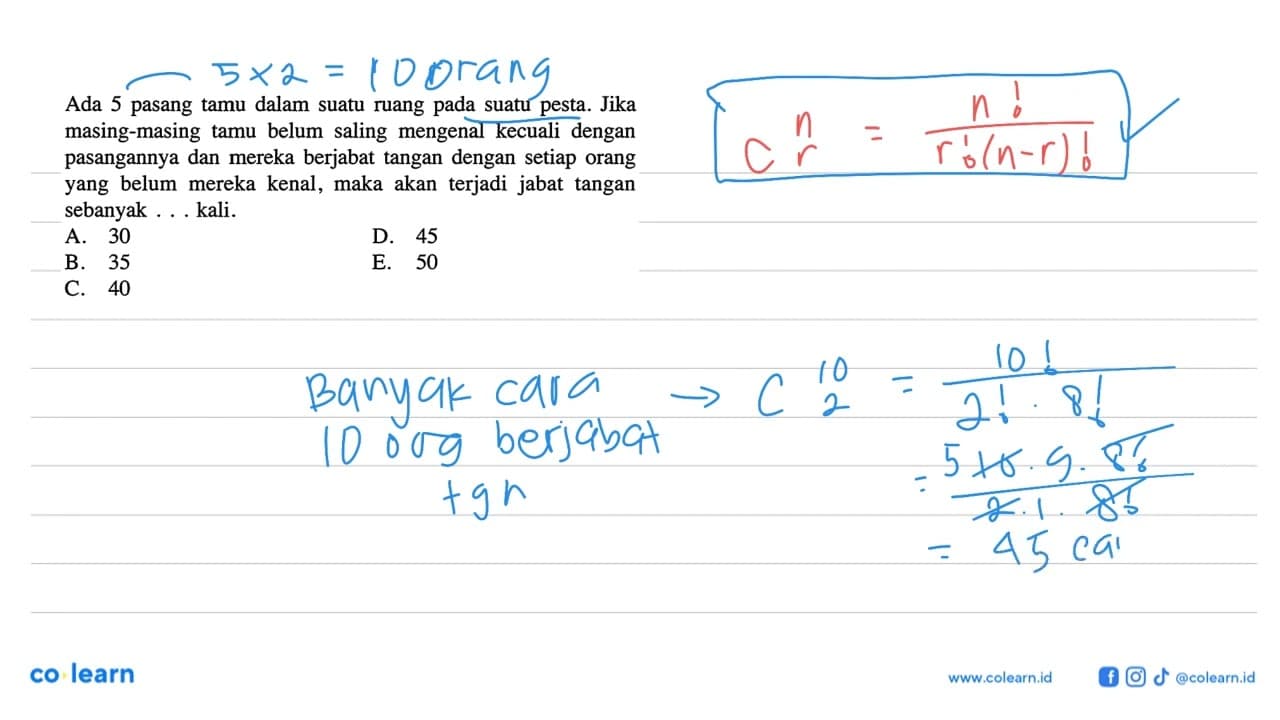 5 x 2 = 10 orang
Ada 5 pasang tamu dalam suatu ruang pada suatu pesta. Jika
masing-masing tamu belum saling mengenal kecuali dengan
pasangannya dan mereka berjabat tangan dengan setiap orang
yang belum mereka kenal, maka akan terjadi jabat tangan
sebanyak . . . kali.
A. 30 D. 45
B. 35 E. 50
C. 40
C n r = n! / r!(n-r)!
Banyak cara → C 10 2 = 10! / 2! . 8!
10 org berjabat
tgn
= 5 10 . 9 . 8! / 2 . 1 . 8!
= 45 car
co learn
www.colearn.id @colearn.id